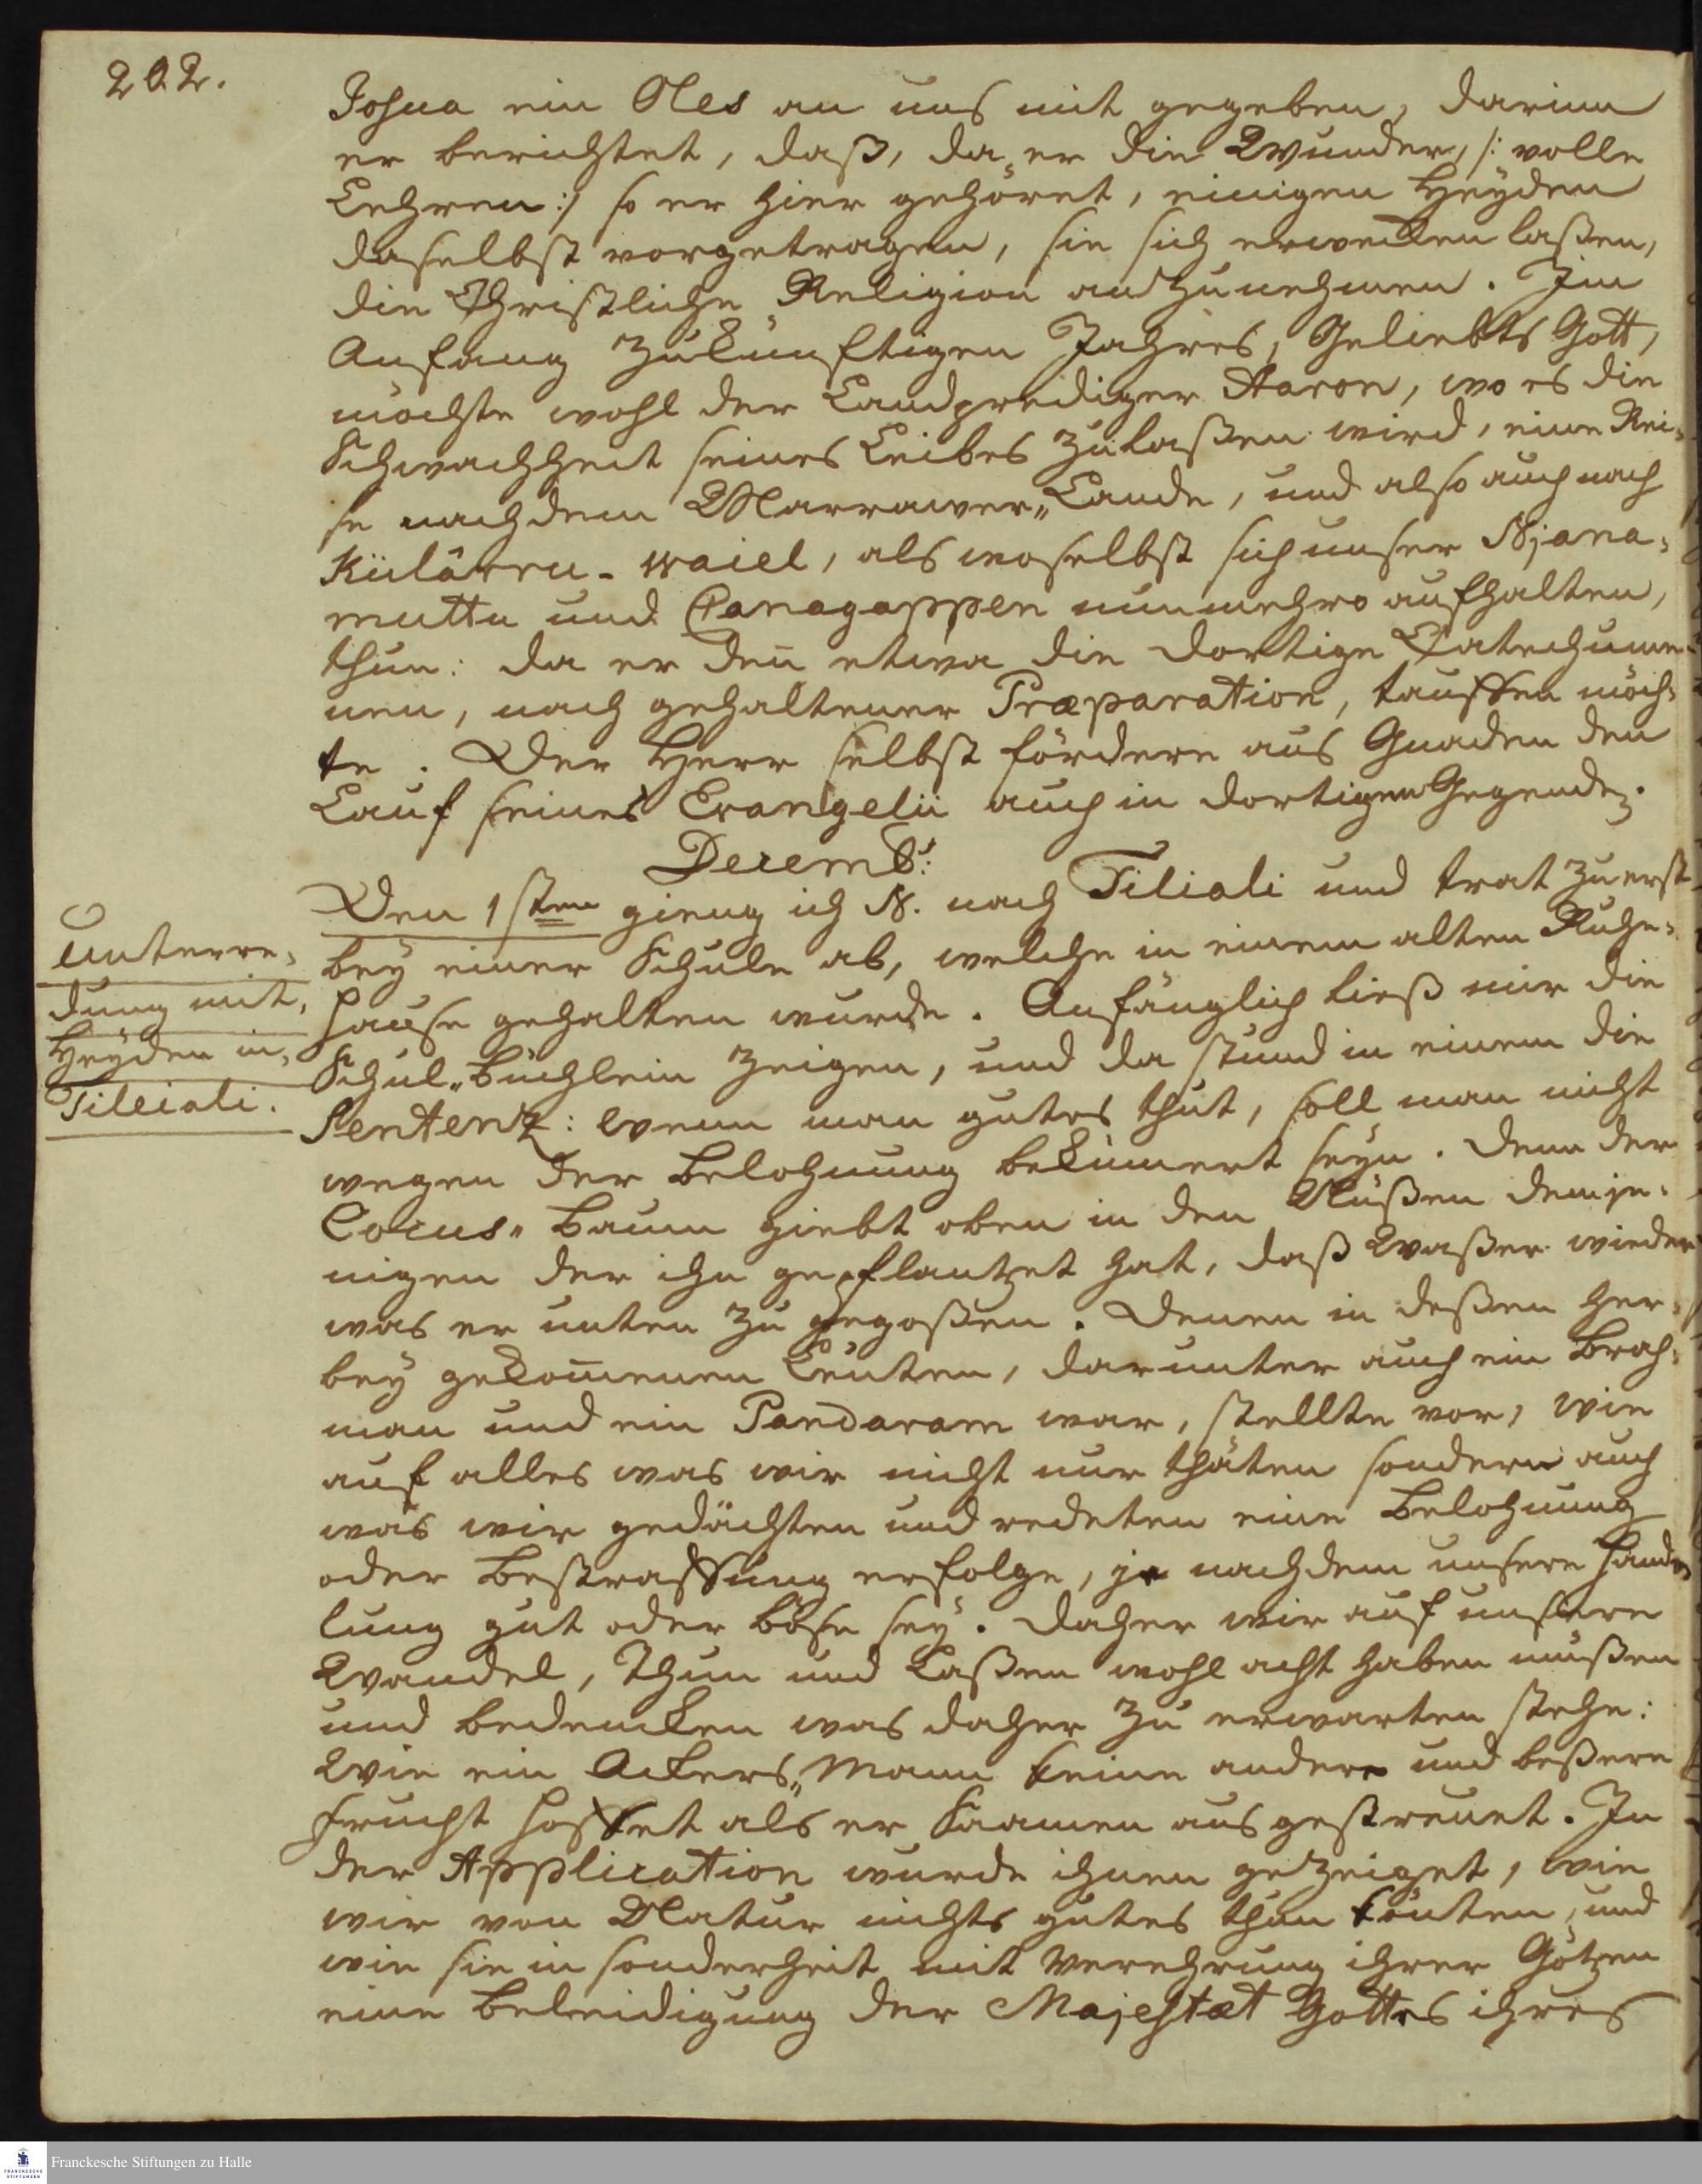 202.
Josua ein Oles an uns mit gegeben, darinn
er berichtet, daß, da er die Wunder, /: volle
Lehren :/ so er hier gehöret, einigen Heyden
daselbst vorgetragen, sie sich erwecken laßen,
die Christliche Religion anzunehmen. Im
Anfang zukünftigen Jahres, Geliebts Gott,
möchte wohl der Landprediger Aaron, wo es die
Schwachheit seines Leibes zulaßen wird, eine Rei„
se nach dem Marrawer„Lande, und also auch nach
Külârru-waiel, als woselbst sich unser Njana„
muttu und Canagappen nunmehro aufhalten,
thun: da er deñ etwa die dortige Catechume„
nen, nach gehaltener Præparation, tauffen möch„
te. Der Herr selbst fördere aus Gnaden den
Lauf seines Evangelii auch in dortigen Gegenden.
Decembr:
Den 1sten gieng ich N. nach Tiliali und trat zuerst
bey einer Schule ab, welche in einem alten Ruhe„
Hause gehalten wurde. Anfänglich ließ mir die
Schul„Büchlein zeigen, und da stund in einem die
Sententz: Wenn man gutes thut, soll man nicht
wegen der Belohnung bekümert seyn. Denn der
Cocus„Baum giebt oben in den Nüßen demje„
nigen der ihn gepflantzet hat, daß Waßer wieder
was er unten zu gegoßen. Denen in deßen her„
bey gekom̃enen Leuten, darunter auch ein Brah„
man und ein Pandaram war, stellte vor, wie
auf alles was wir nicht nur thäten sondern auch
was wir gedächten und redeten eine Belohnung
oder Bestraffung erfolge, je nachdem unsere Hand„
lung gut oder böse sey. Daher wir auf unsere
Wandel, Thun und Laßen wohl acht haben müßen
und bedencken was daher zu erwarten stehe:
Wie ein Ackers„Mann keine andere und beßere
Frucht hoffet als er Saamen ausgestreuet. In
der Application wurde ihnen gezeiget, wie
wir von Natur nichts gutes thun könten, und
wie sie in sonderheit mit Verehrung ihrer Götzen
eine Beleidigung der Majestæt Gottes ihres
Unterre„
dung mit
Heyden in
Tilliali.
Franckesche Stiftungen zu Halle